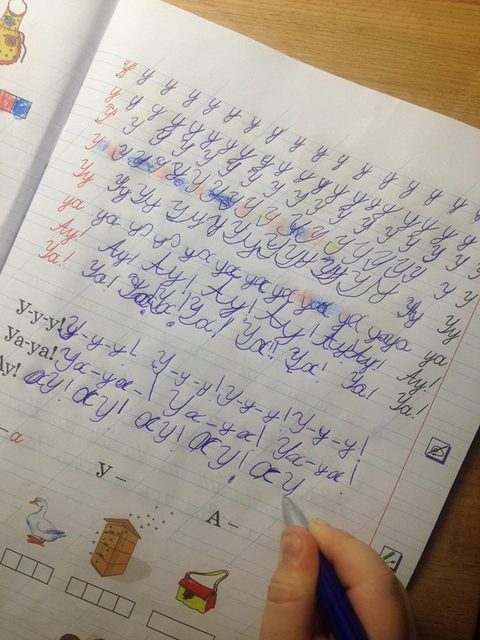 у у у у у у у у у у у у у у у у у
у у у у у у у у у у у у у у у у у
У У У У У У У У У У У У У У У
У У У У У У У У У У У У У У
Уу Уу Уу Уу Уу Уу Уу Уу Уу Уу
уа уа уа уа уа уа уа уа уа уа уа
Ау! Ау! Ау! Ау! Ау! Ау! Ау! Ау!
Уа! Уа! Уа! Уа! Уа! Уа! Уа! Уа!
У-у-у! У-у-у! У-у-у! У-у-у! У-у-у!
Уа-уа! Уа-уа-! Уа-уа! Уа-уа!
Ау! ау! ау! ау! ау! ау
– а
У –
А –